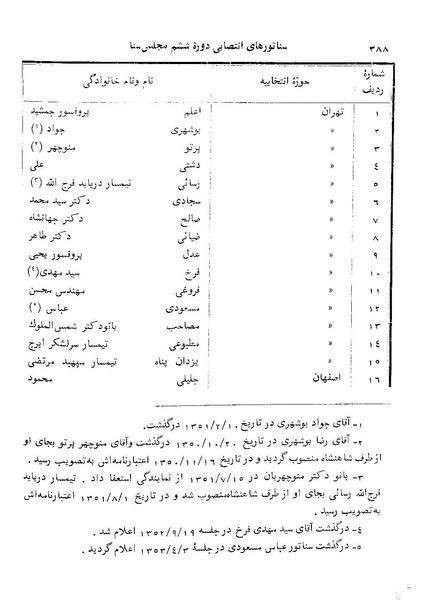 ۳۸۸ سناتورهای انتصابی دورهٔ ششم مجلس سنا
شمارهٔ ردیف حوزهٔ انتخابیه نام ونام خانوادگی
۱ تهران اعلم پروفسور جمشید
۲ » بوشهری جواد (۱)
۳ » پرتو منوچهر (۲)
۴ » دشتی علی
۵ » رسائی تیمسار دریابد فرج الله (۳)
۶ » سجادی دکتر سید محمد
۷ » صالح دکتر جهانشاه
۸ » ضیائی دکتر طاهر
۹ » عدل پروفسور یحیی
۱۰ » فرخ سید مهدی(۴)
۱۱ » فروغی مهندس محسن
۱۲ » مسعودی عباس (۵)
۱۳ » مصاحب بانودکتر شمس‌الملوک
۱۴ » مطبوعی تیمسار سرلشکر ایرج
۱۵ » یزدان پناه تیمسار سپهبد مرتضی
۱۶ اصفهان جلیلی محمود
۱ـ آقای جواد بوشهری در تاریخ ۱۳۵۱/۲/۱۰ درگذشت.
۲ـ آقای رضا بوشهری در تاریخ ۱۳۵۰/۱۰/۲۰ درگذشت وآقای منوچهر پرتو بجای او
از طرف شاهنشاه منصوب گردید و در تاریخ ۱۳۵۰/۱۱/۱۶ اعتبارنامه‌اش به‌تصویب رسید .
۳ـ بانو دکتر منوچهریان در ۱۳۵۱/۷/۱۵ از نمایندگی استعفا داد . تیمسار دریابد
فرج‌الله رسائی بجای او از طرف شاهنشاه‌منصوب شد و در تاریخ ۱۳۵۱/۸/۱ اعتبارنامه‌اش
به‌تصویب رسید .
۴ـ درگذشت آقای سید مهدی فرخ در جلسه ۱۳۵۲/۹/۱۹ اعلام شد .
۵ـ درگذشت سناتور عباس مسعودی در جلسهٔ ۱۳۵۳/۴/۳ اعلام گردید .